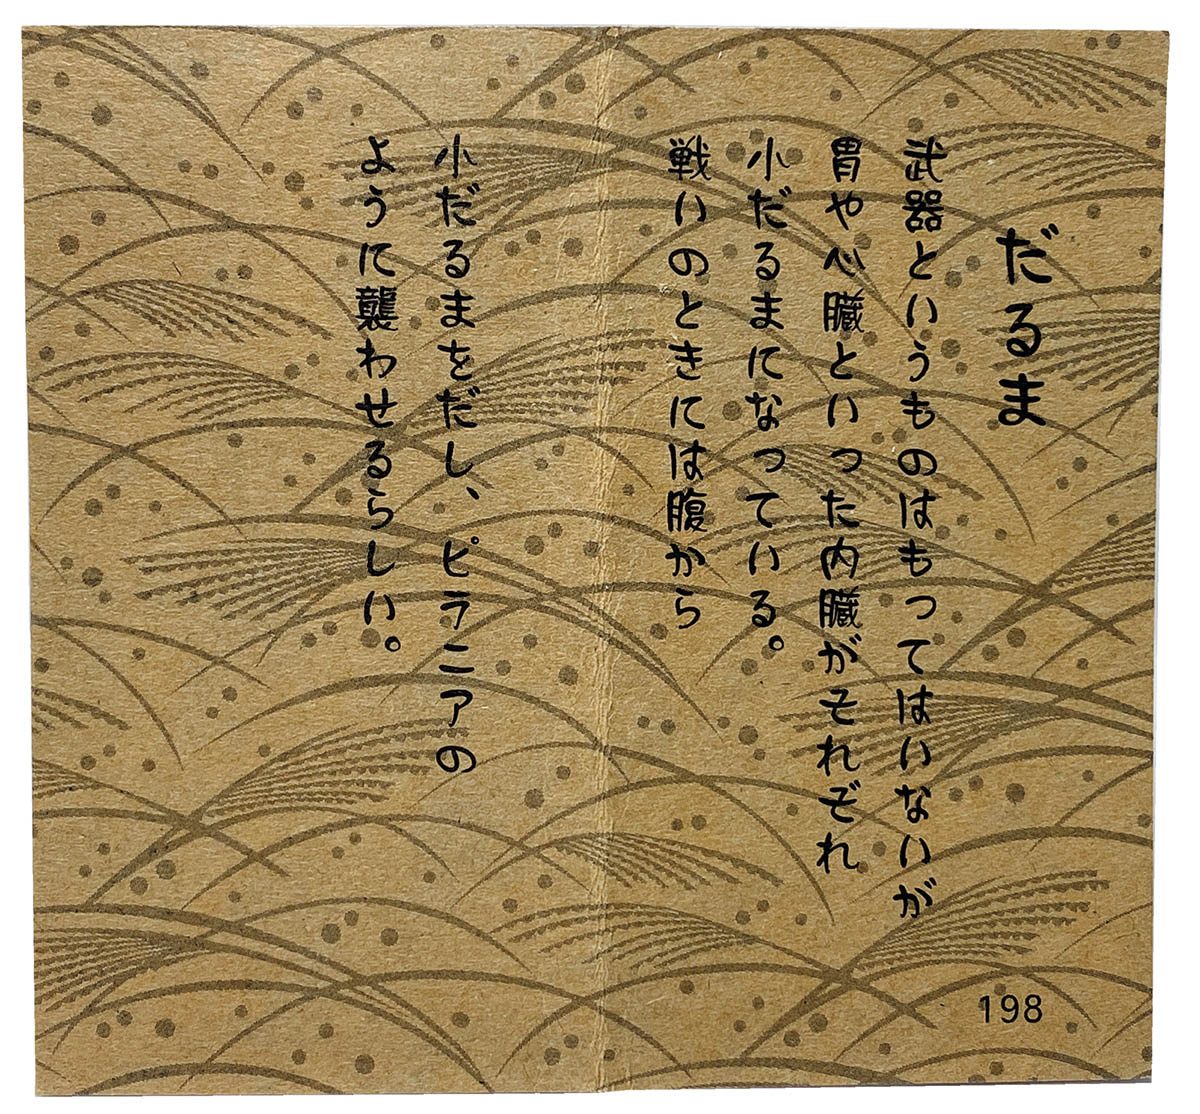 だるま
武器というものはもってはいないが
胃や心臓といった内臓がそれぞれ
小だるまになっている。
戦いのときには腹から
小だるまをだし、ピラニアの
ように襲わせるらしい。
198